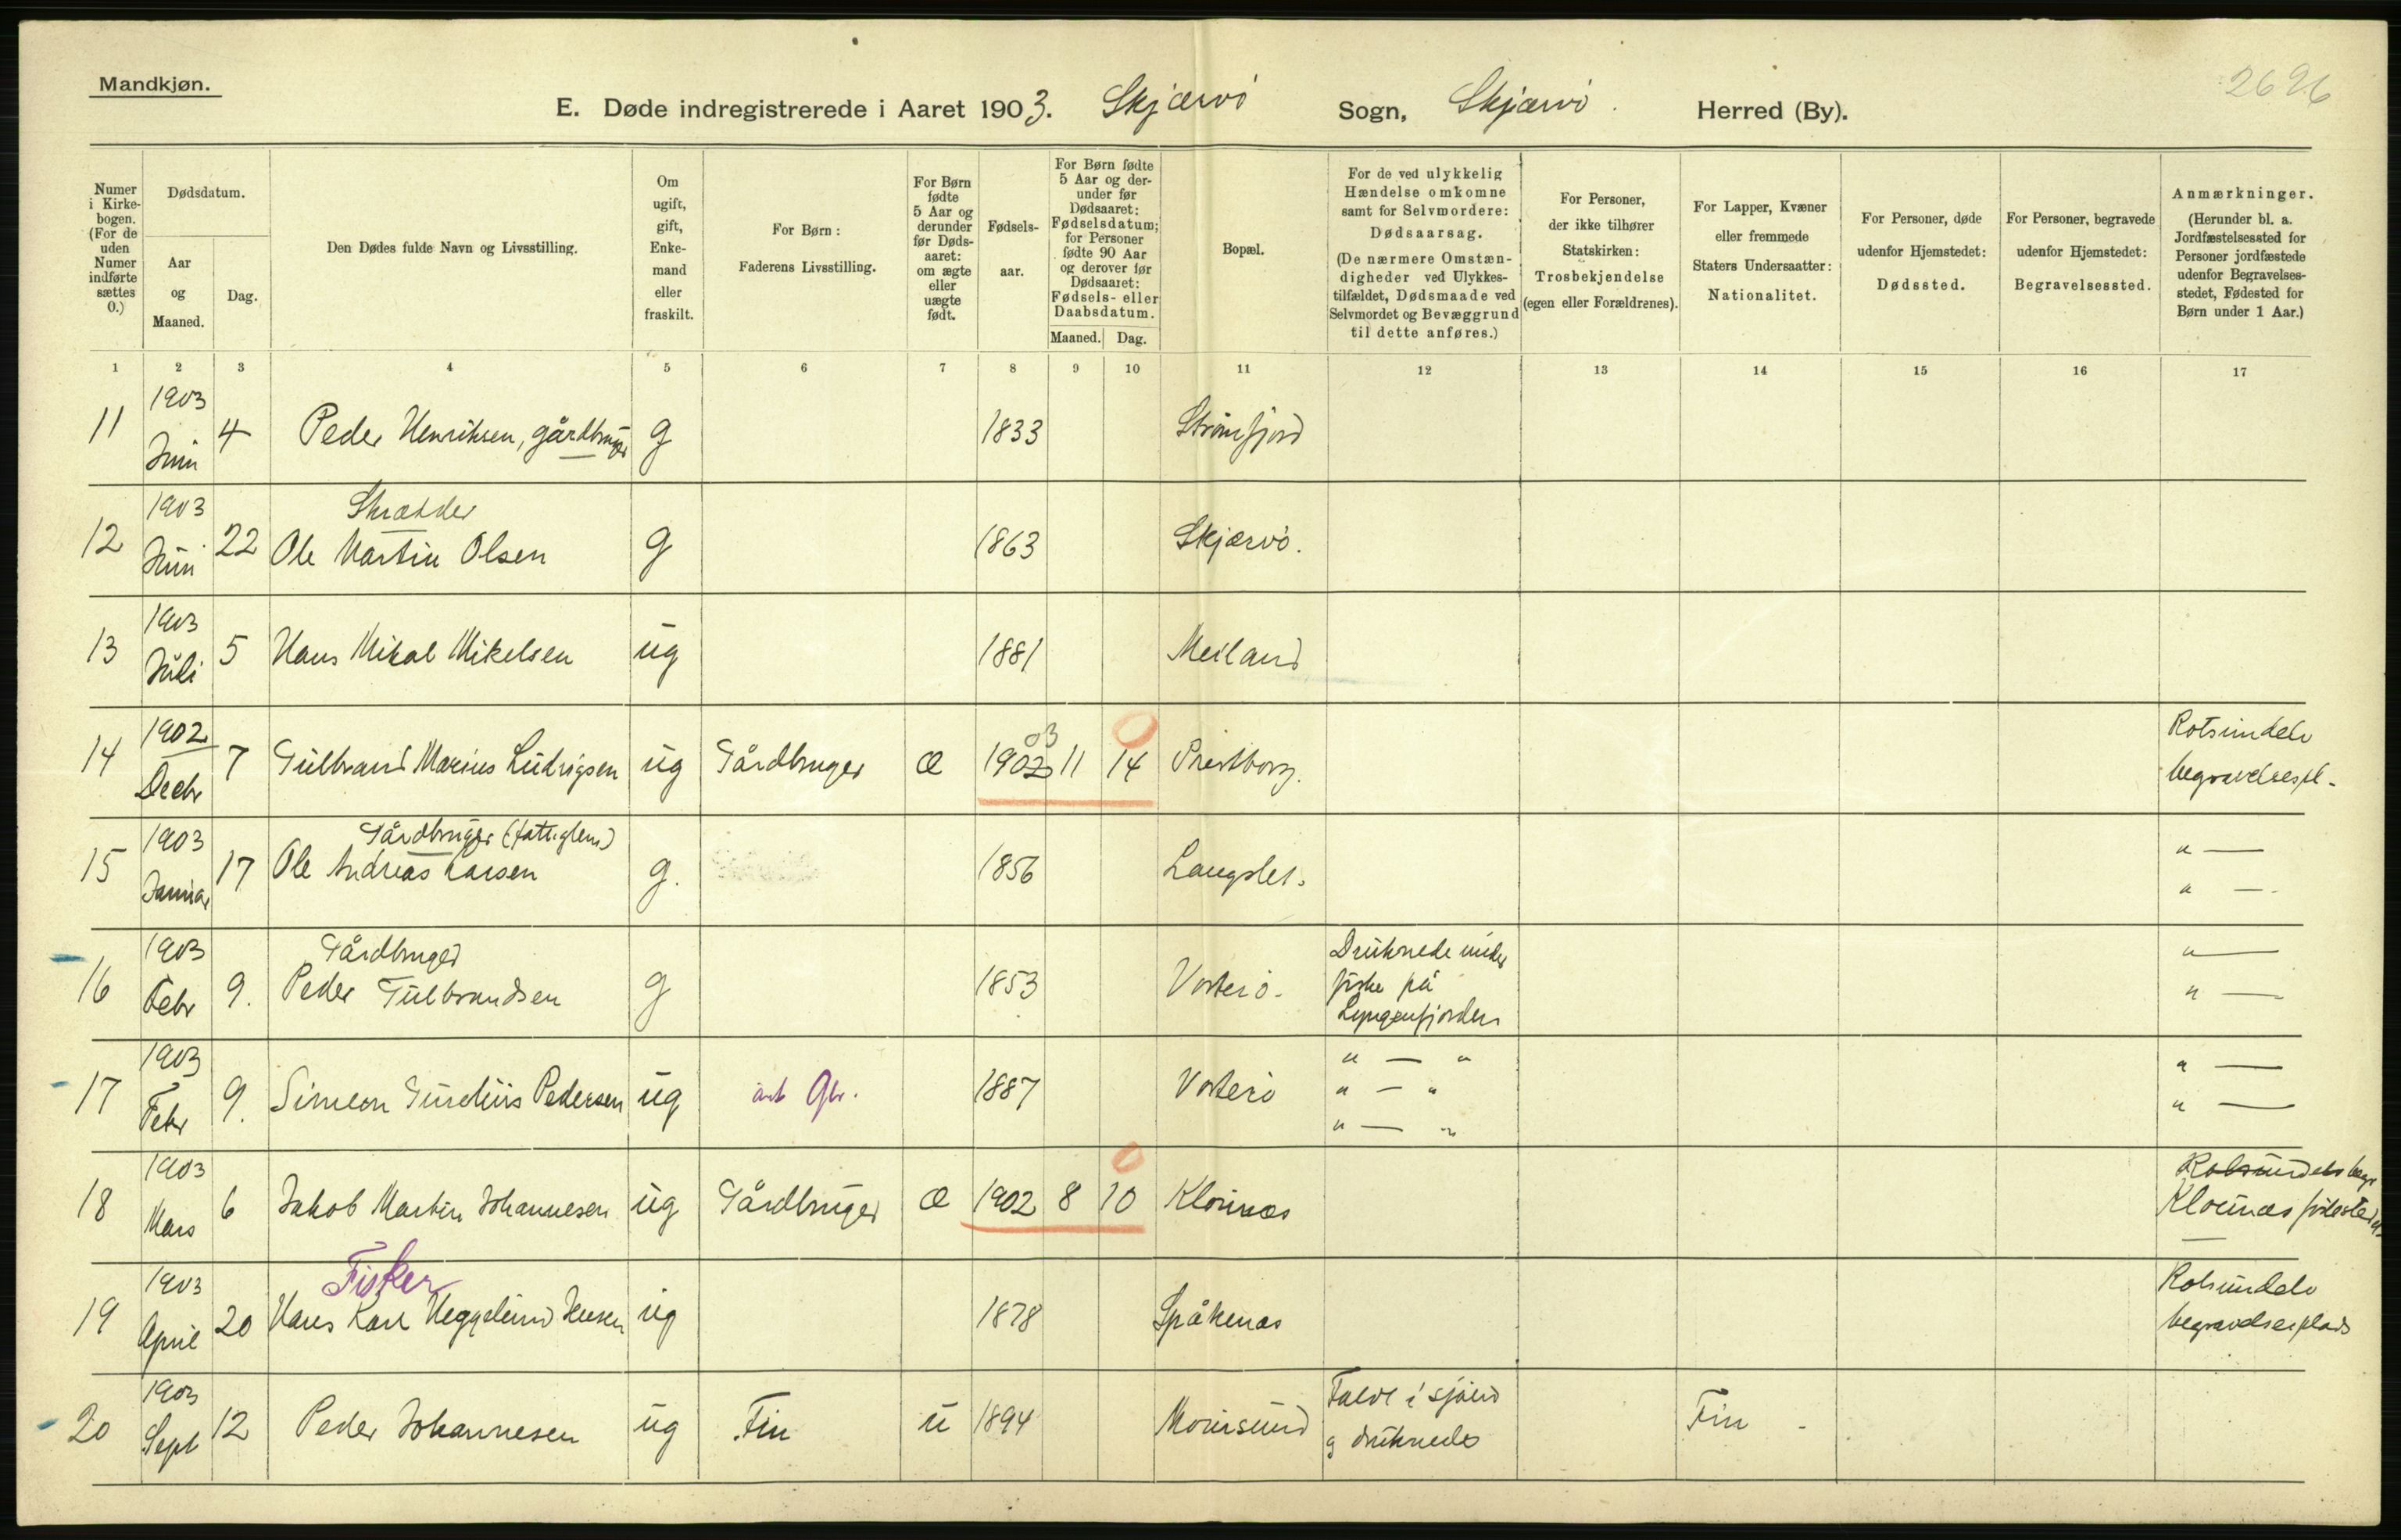 Mandkjøn.
2626
E. Døde indregistrerede i Aaret 1903. Skjærvö Sogn, Skjærvö. Herred (By).
Numer i Kirkebogen. (For de uden Numer indførte sættes 0.)
Dødsdatum.
Aar og Maaned.
Dag.
Den Dødes fulde Navn og Livsstilling.
Om ugift, gift, Enkemand eller fraskilt.
For Børn: Faderens Livsstilling.
For Børn fødte 5 Aar og derunder før Dødsaaret: om ægte eller uægte født.
Fødselsaar.
For Børn fødte 5 Aar og derunder før Dødsaaret: Fødselsdatum; for Personer fødte 90 Aar og derover før Dødsaaret: Fødsels- eller Daabsdatum.
Maaned. Dag.
Bopæl.
For de ved ulykkelig Hændelse omkomne samt for Selvmordere: Dødsaarsag.
(De nærmere Omstændigheder ved Ulykkestilfældet, Dødsmaade ved Selvmordet og Bevæggrund til dette anføres.)
For Personer, der ikke tilhører Statskirken: Trosbekjendelse (egen eller Forældrenes).
For Lapper, Kvæner eller fremmede Staters Undersaatter: Nationalitet.
For Personer, døde udenfor Hjemstedet: Dødssted.
For Personer, begravede udenfor Hjemstedet: Begravelsessted.
Anmærkninger.
(Herunder bl. a. Jordfæstelsessted for Personer jordfæstede udenfor Begravelsesstedet, Fødested for Børn under 1 Aar.)
1 2 3 4 5 6 7 8 9 10 11 12 13 14 15 16 17
11 1903 Juni 4 Peder Henriksen, gårdbruger g 1833 Strømfjord
12 1903 Juni 22 Skrædder Ole Martin Olsen g 1863 Skjærvö.
13 1903 Juli 5 Hans Mikal Mikelsen ug 1881 Meiland
14 1902 Decbr 7 Gulbrand Marius Ludvigsen ug Gårdbruger æ 1902 03 11 14 0 Rotsundelv begravelsespl.
15 1903 Januar 17 Gårdbruger (fattiglem) Ole Andreas Larsen g. 1856 Langslet. " — " —
16 1903 Febr 9. Gårdbruger Peder Gulbrandsen g 1853 Vorterö. Druknede under fiske på Lyngenfjorden " — " —
17 1903 Febr 9. Simeon Pedersen ug Gbr. 1887 Vorterö " — " " — " " — " " — " —
18 1903 Mars 6 Jakob Martin Johannesen ug Gårdbruger æ 1902 8 10 0 Rotsundelv begr
19 1903 April 20 Fisker Hans Karl Heggelund ug 1878 Spåkenæs Rotsundelv begravelsesplads
20 1903 Sept 12 Peder Johannesen ug Fin u 1894 Faldt i sjöen og druknede Fin